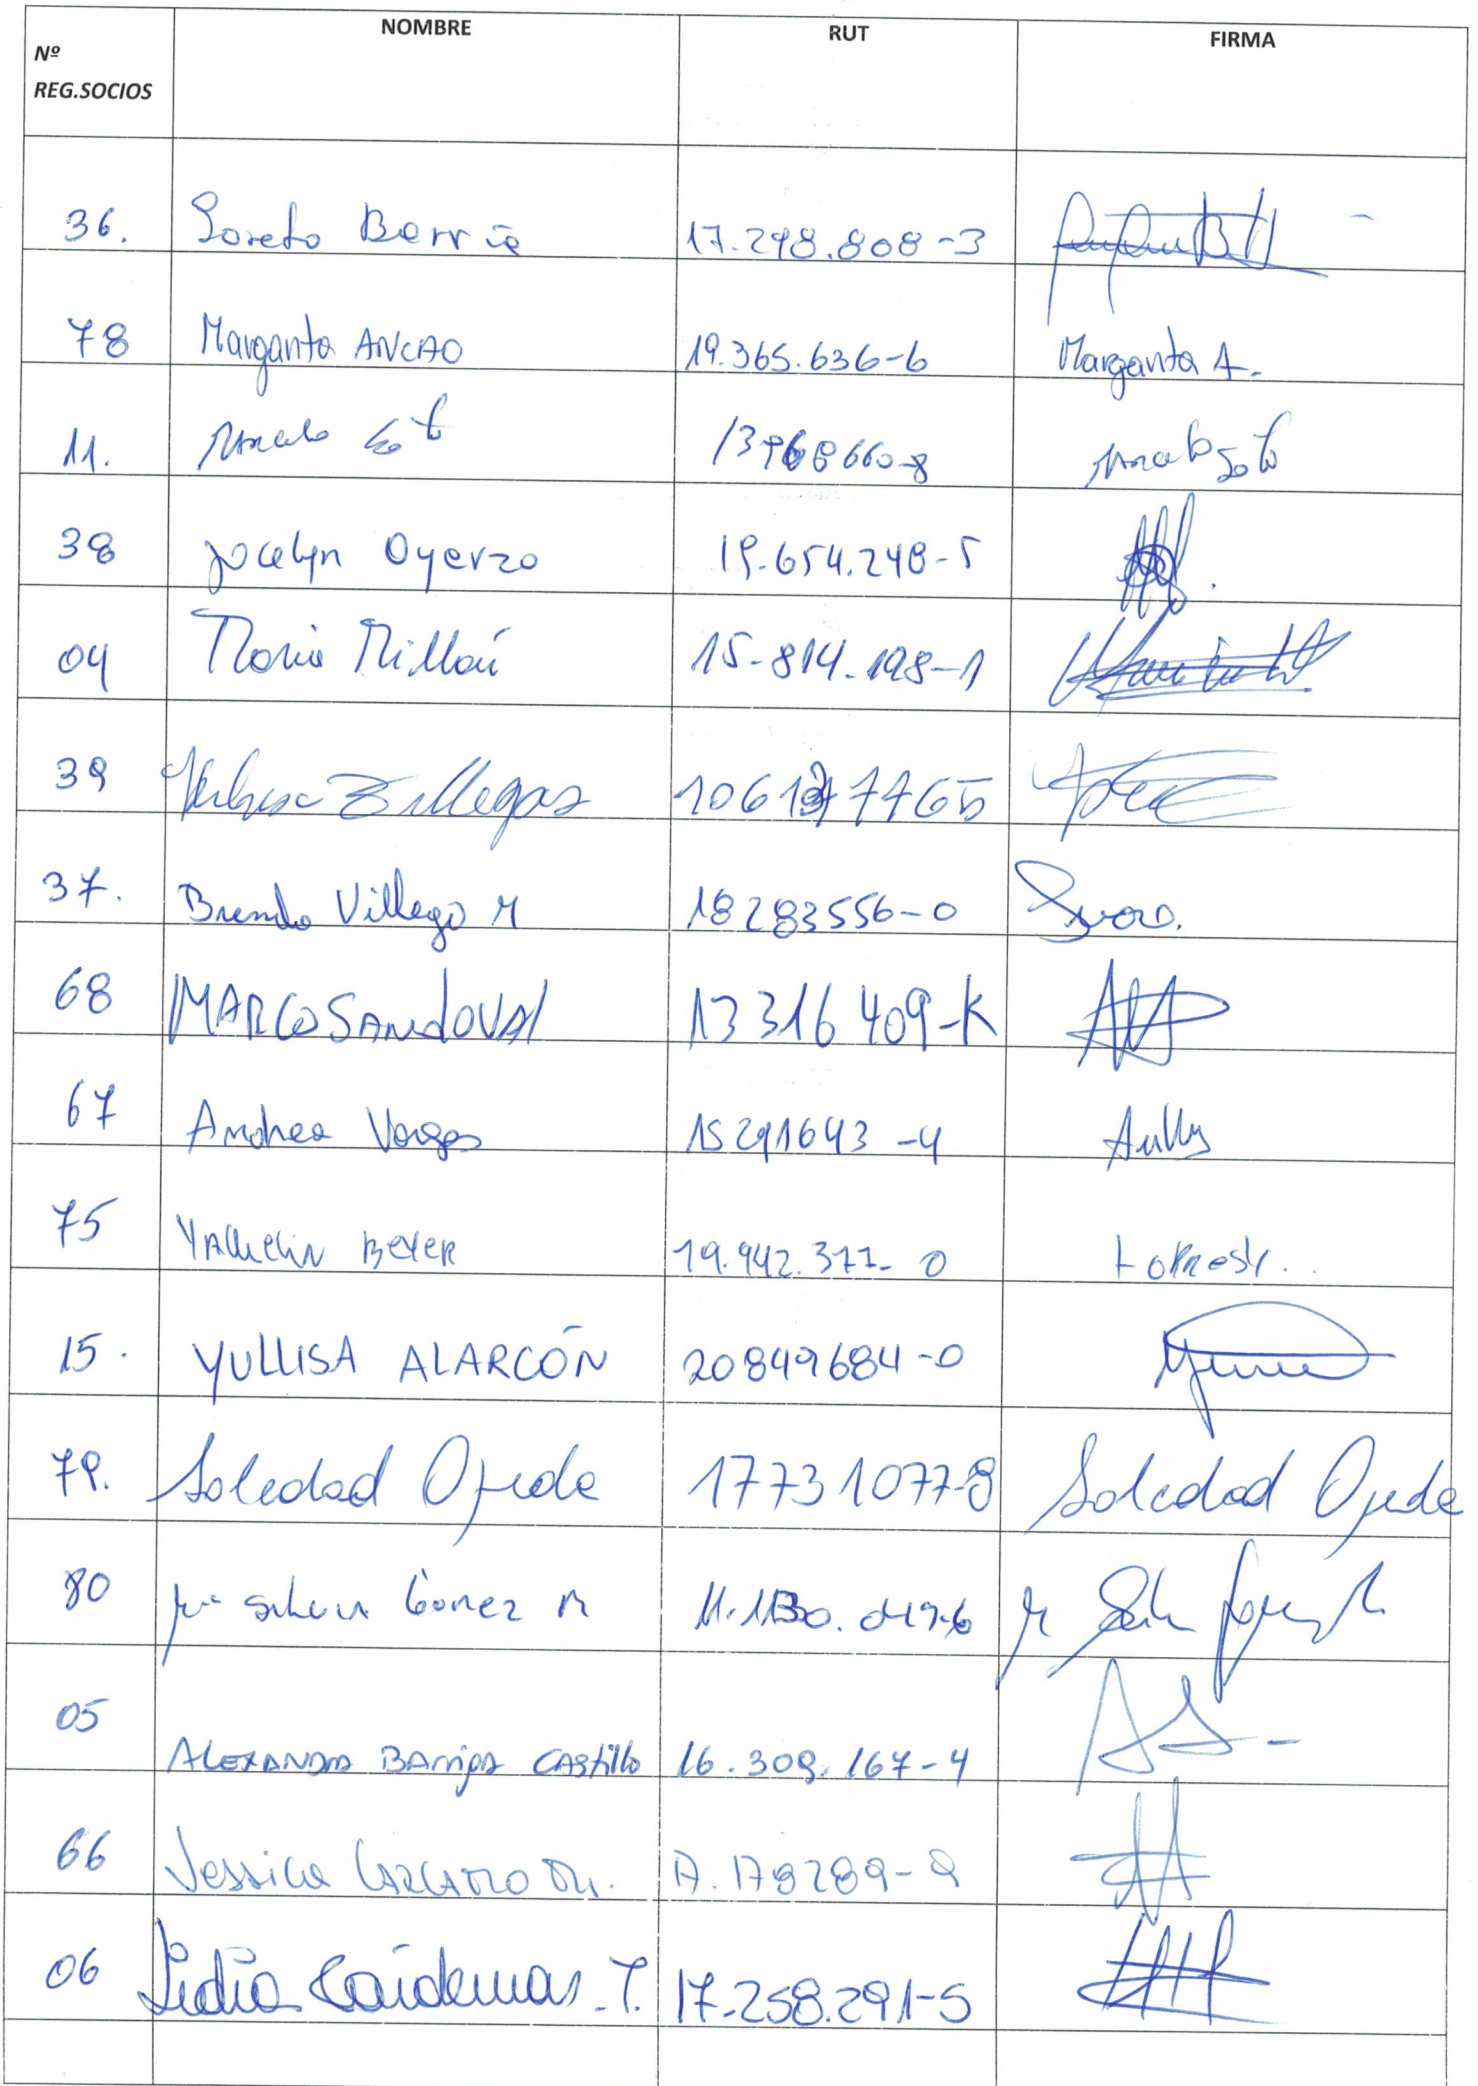 Nº REG.SOCIOS NOMBRE RUT FIRMA
36. Loreto Barría 17.298.808-3
78 Margarita ANCAO 19.365.636-6 Margarita A.
11. Marcelo Soto 8 Marcelo Soto
38 Jocelyn Oyarzo 19.654.248-5
04 Maria Millan 15-814.198-1
39 Villegas
37. Brenda Villega M 18283556-0
68 MARCO SANDOVAl 13316409-K
67 Andrea Vargas 15291643-4
75 YAllelin BEYER 19.942.377-0
15. YULLISA ALARCÓN 20849684-0
79. Soledad Ojeda 17731077-8 Soledad Ojeda
80 Mª Silvia Gómez M
05 ALEXANDRA BARRIGA CAStillo 16.309.167-4
66 Jessica 17.179289-9
06 Lidia Cárdenas. T. 17-258.291-5